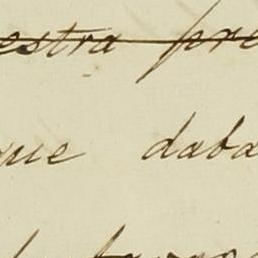 estra pre
que daba